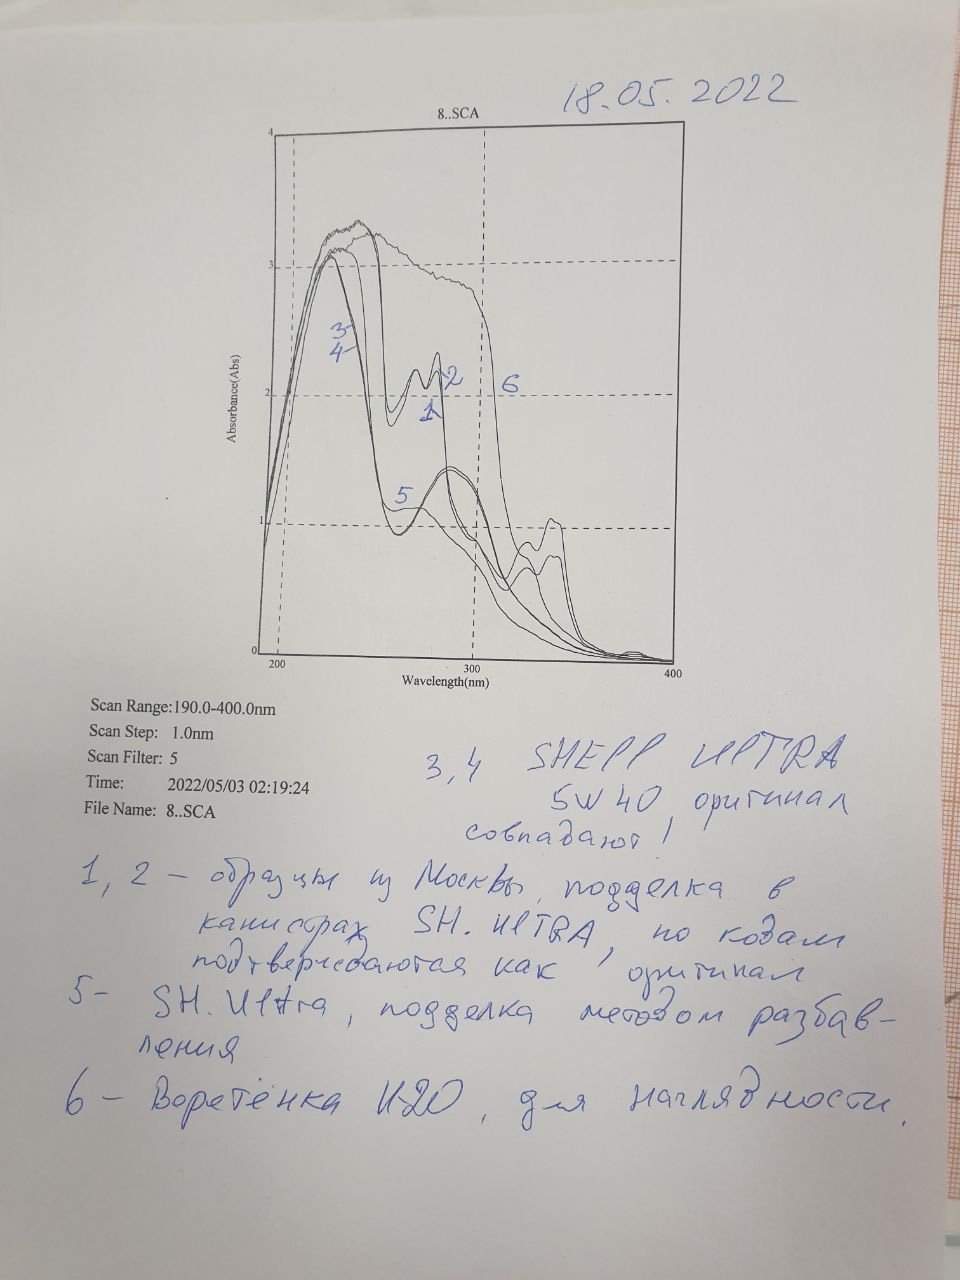 18.05.2022
8..SCA
4
3
2
1
0
Absorbance(Abs)
3
4
2
1
6
5
200
300
400
Wavelength(nm)
Scan Range:190.0-400.0nm
Scan Step: 1.0nm
Scan Filter: 5
Time: 2022/05/03 02:19:24
File Name: 8..SCA
3,4 SHELL ULTRA
5W40, оригинал
совпадают!
1, 2 – образцы из Москвы, подделка в
канистрах SH. ULTRA, по кодам
подтверждаются как оригинал
5- SH. Ultra, подделка методом разбав-
ления
6 – Веретёнка И-20, для наглядности.